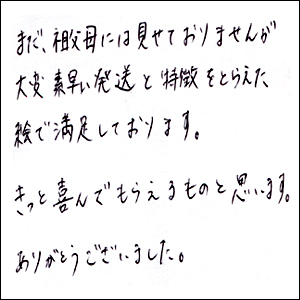 まだ、祖父母には見せておりませんが
大変素早い発送と特徴をとらえた
絵で満足しております。
きっと喜んでもらえるものと思います。
ありがとうございました。